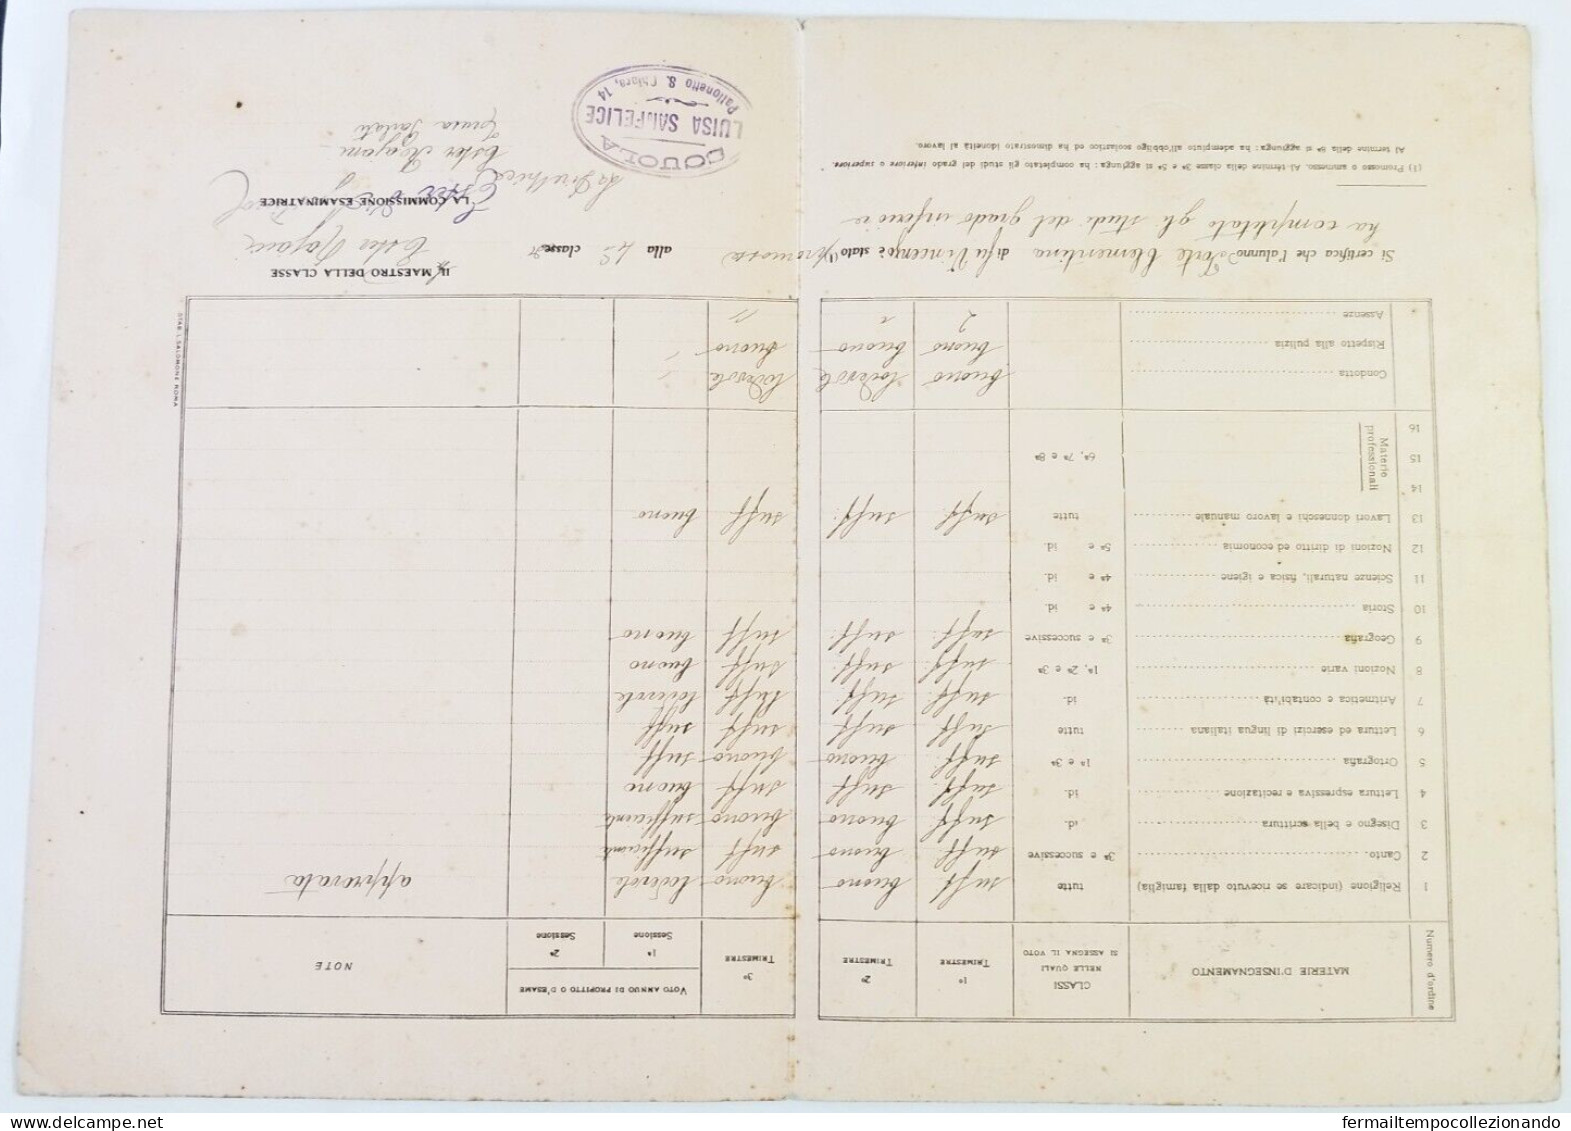 Numero d'ordine
MATERIE D'INSEGNAMENTO
CLASSI NELLE QUALI SI ASSEGNA IL VOTO
1º TRIMESTRE
2º TRIMESTRE
3º TRIMESTRE
VOTO ANNUO DI PROFITTO O D'ESAME
1ª Sessione
2ª Sessione
NOTE
1 Religione (indicare se ricevuto dalla famiglia) tutte suff buono buono lodevole approvata
2 Canto. 3ª e successive suff. buono suff sufficiente
3 Disegno e bella scrittura id. suff. buono buono sufficiente
4 Lettura espressiva e recitazione id. suff. suff suff buono
5 Ortografia 1ª e 3ª suff. buono buono suff
6 Lettura ed esercizi di lingua italiana tutte suff. suff suff suff
7 Aritmetica e contabilità id. suff. suff. suff lodevole
8 Nozioni varie 1ª, 2ª e 3ª suff. suff. suff buono
9 Geografia 3ª e successive suff. suff. suff buono
10 Storia 4ª e id.
11 Scienze naturali, fisica e igiene 4ª e id.
12 Nozioni di diritto ed economia 5ª e id.
13 Lavori donneschi e lavoro manuale tutte suff. suff. suff buono
14
15 Materie professionali 6ª, 7ª e 8ª
16
Condotta buono lodevole lodevole
Rispetto alla pulizia buono buono buono
Assenze 2 2 11
Si certifica che l'alunno Forte Clementina di fu Vincenzo è stato (1) promossa alla 4ª classe.
ha completato gli studi del grado inferiore
(1) Promosso o ammesso. Al termine della classe 3ª e 5ª si aggiunga: ha completato gli studi del grado inferiore o superiore.
Al termine della 5ª si aggiunga: ha adempiuto all'obbligo scolastico ed ha dimostrato idoneità al lavoro.
IL MAESTRO DELLA CLASSE
Ester
LA COMMISSIONE ESAMINATRICE
Ester
La Direttrice
Luisa
SCUOLA
LUISA SANFELICE
Pallonetto S. Chiara, 14
STAB. L. SALOMONE ROMA
fermailtempocollezionando